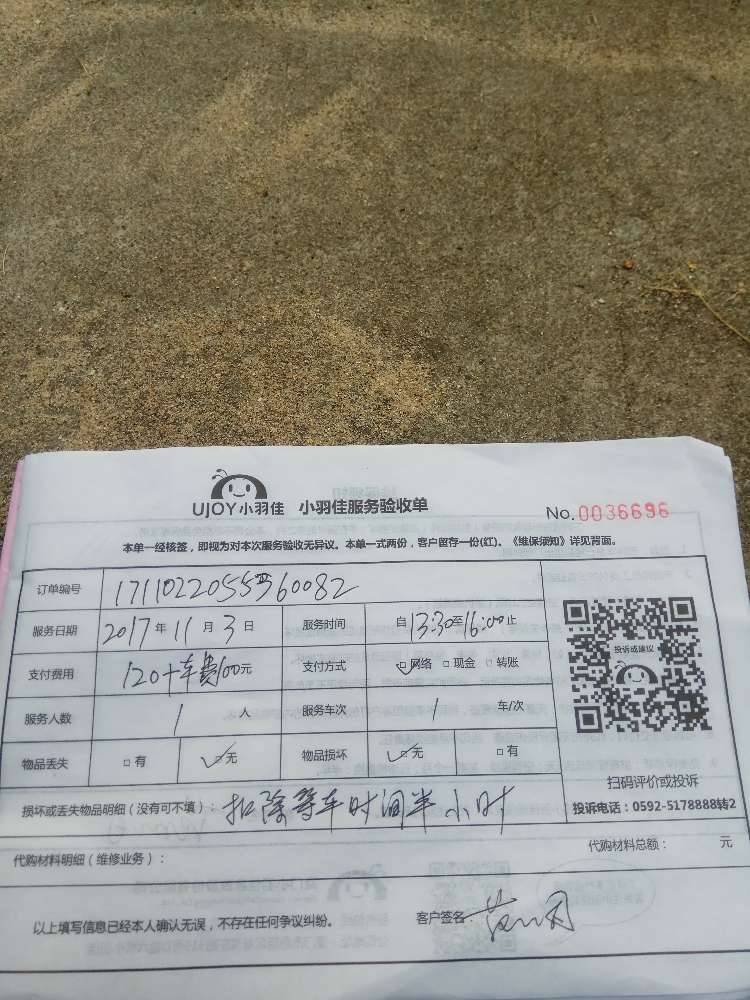 UJOY小羽佳 小羽佳服务验收单
No. 0036696
本单一经核签，即视为对本次服务验收无异议。本单一式两份，客户留存一份(红)。《维保须知》详见背面。
订单编号
服务日期 2017年11月3日 服务时间 自13:30至16:00止
支付费用 120+车费100元 支付方式 网络 现金 转账
服务人数 1人 服务车次 1 车/次
投诉或建议
物品丢失 有 无 物品损坏 无 有
扫码评价或投诉
投诉电话：0592-5178888转2
损坏或丢失物品明细（没有可不填）：扣除等车时间半小时
代购材料明细（维修业务）： 代购材料总额： 元
以上填写信息已经本人确认无误，不存在任何争议纠纷。 客户签名：